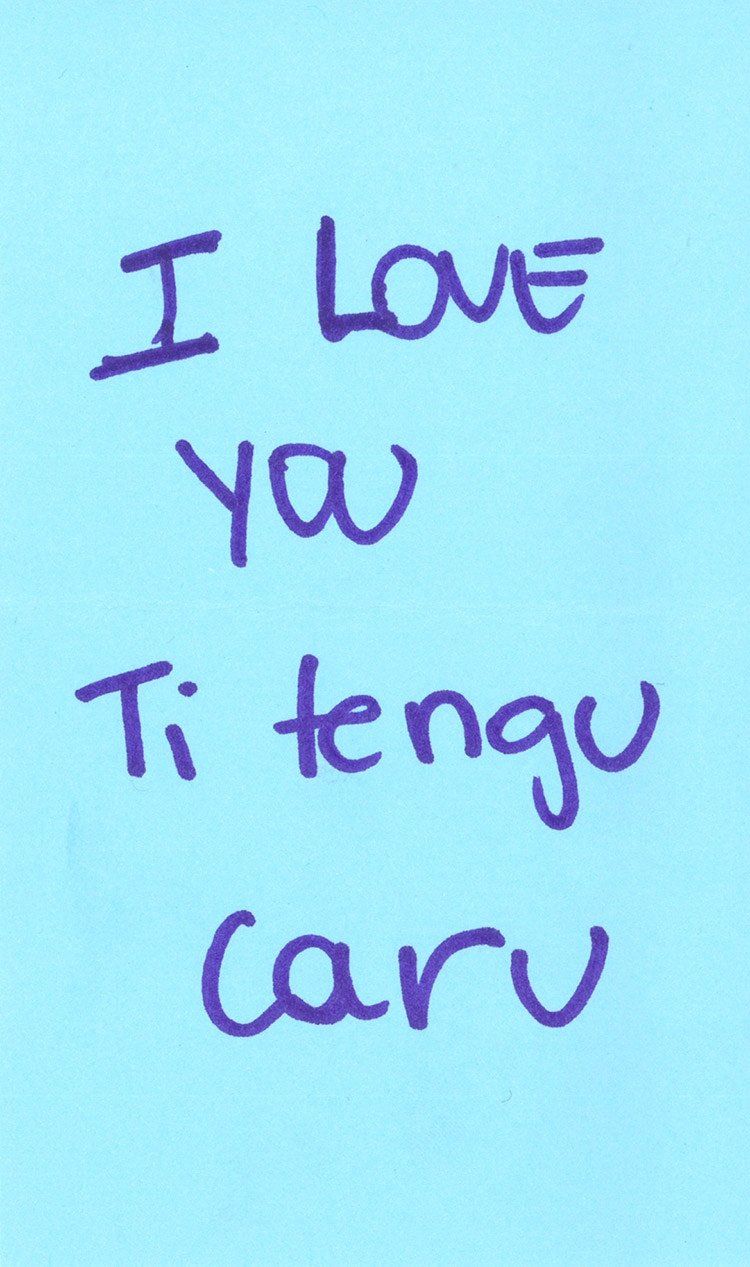 I LOVE
YOU
Ti tengu
caru